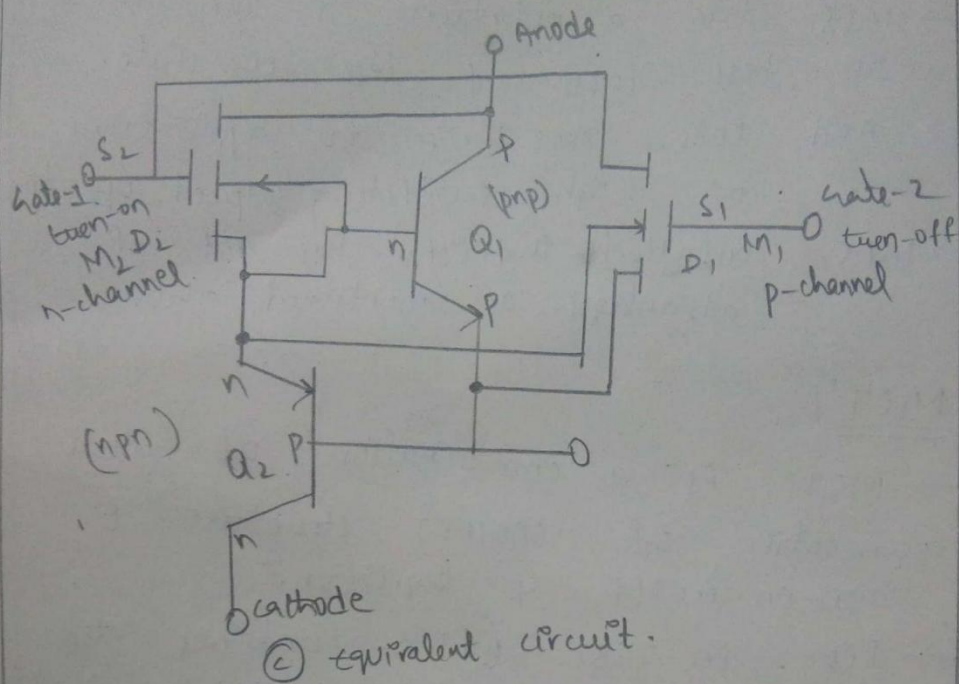 Anode
S2
Gate-1
turn-on
M2 D2
n-channel
p
(pnp)
n
Q1
p
S1
M1
D1
Gate-2
turn-off
p-channel
n
(npn)
Q2
p
n
cathode
(c) Equivalent circuit.